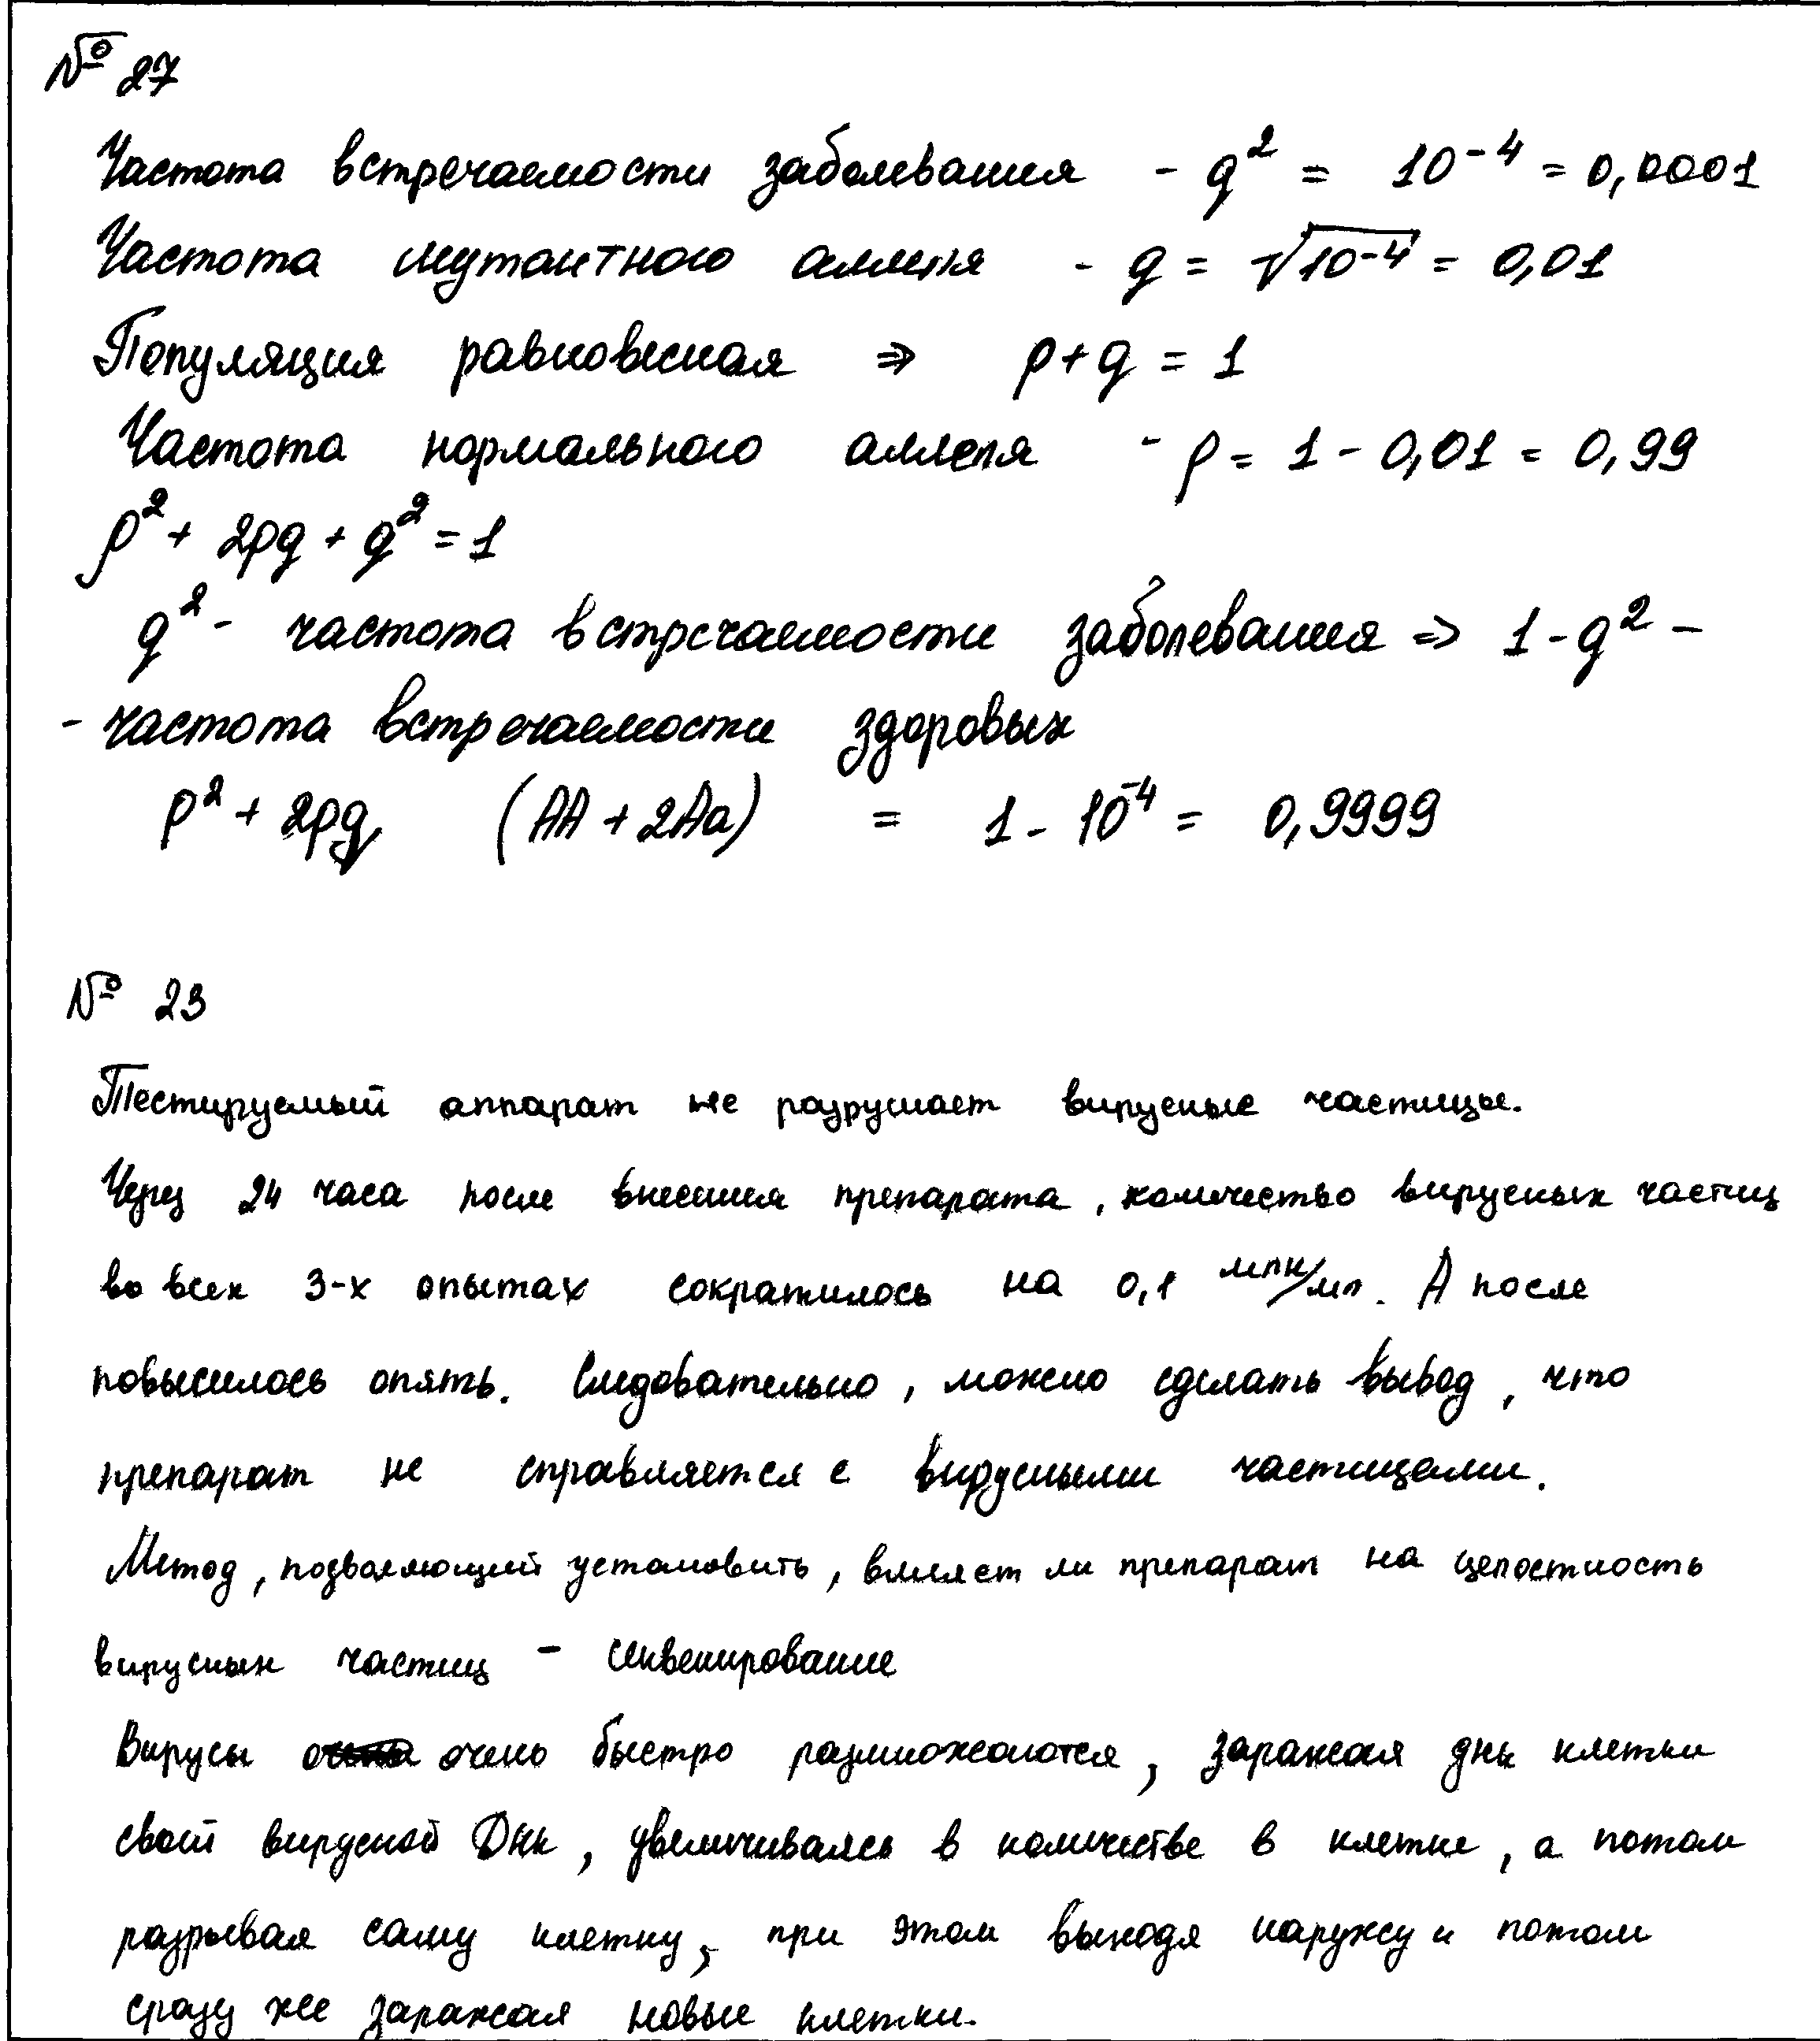 № 27
Частота встречаемости заболевания - q² = 10⁻⁴ = 0,0001
Частота мутантного аллеля - q = √10⁻⁴ = 0,01
Популяция равновесная ⇒ p+q = 1
Частота нормального аллеля - p = 1 - 0,01 = 0,99
p² + 2pq + q² = 1
q² - частота встречаемости заболевания ⇒ 1 - q² -
- частота встречаемости здоровых
p² + 2pq, (AA + 2Aa) = 1 - 10⁻⁴ = 0,9999
№ 23
Тестируемый аппарат не разрушает вирусные частицы.
Через 24 часа после внесения препарата, количество вирусных частиц
во всех 3-х опытах сократилось на 0,1 млн/мл. А после
повысилось опять. Следовательно, можно сделать вывод, что
препарат не справляется с вирусными частицами.
Метод, подволяющий установить, влияет ли препарат на целостность
вирусных частиц - секвенирование
Вирусы очень быстро размножаются, заражая днк клетки
свой вирусной Днк, увеличиваясь в количестве в клетке, а потом
разрывая саму клетку, при этом выходя наружу и потом
сразу же заражая новые клетки.